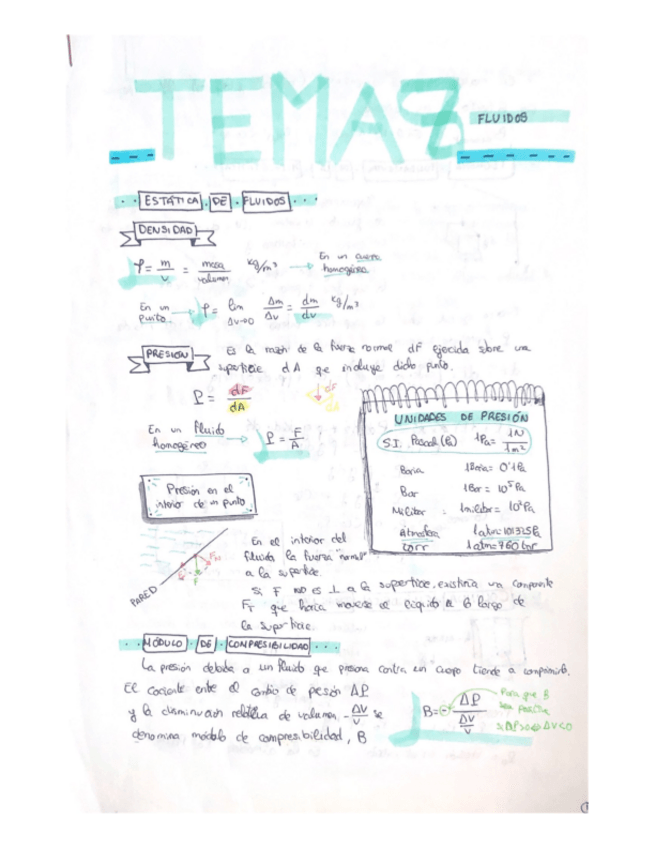 TEMA 8
FLUIDOS
ESTÁTICA DE FLUIDOS
DENSIDAD
ρ = m/v = masa/volumen kg/m³ → En un cuerpo homogéneo
En un punto → ρ = lim Δv→0 Δm/Δv = dm/dv kg/m³
PRESIÓN Es la razón de la fuerza normal dF ejercida sobre una
superficie dA que incluye dicho punto.
P = dF/dA
dF
dA
En un fluido homogéneo → P = F/A
UNIDADES DE PRESIÓN
S.I. Pascal (Pa) 1Pa = 1N/1m²
Baria 1Baria = 0'1Pa
Bar 1Bar = 10⁵ Pa
Milibar 1milibar = 10² Pa
Atmósfera 1atm = 101325Pa
torr 1atm = 760 tor
Presión en el
interior de un punto
En el interior del
fluido la fuerza "normal"
a la superficie.
PARED
F
Si F no es ⊥ a la superficie, existiría una componente
F_T que haría moverse el líquido a lo largo de
la superficie.
MÓDULO DE COMPRESIBILIDAD
La presión debida a un fluido que presiona contra un cuerpo tiende a comprimirlo.
El cociente entre el cambio de presión ΔP
y la disminución relativa de volumen -ΔV/V se
denomina, módulo de compresibilidad, B
B = - ΔP / (ΔV/V)
Para que B
sea positivo
si ΔP>0 ⇔ ΔV<0